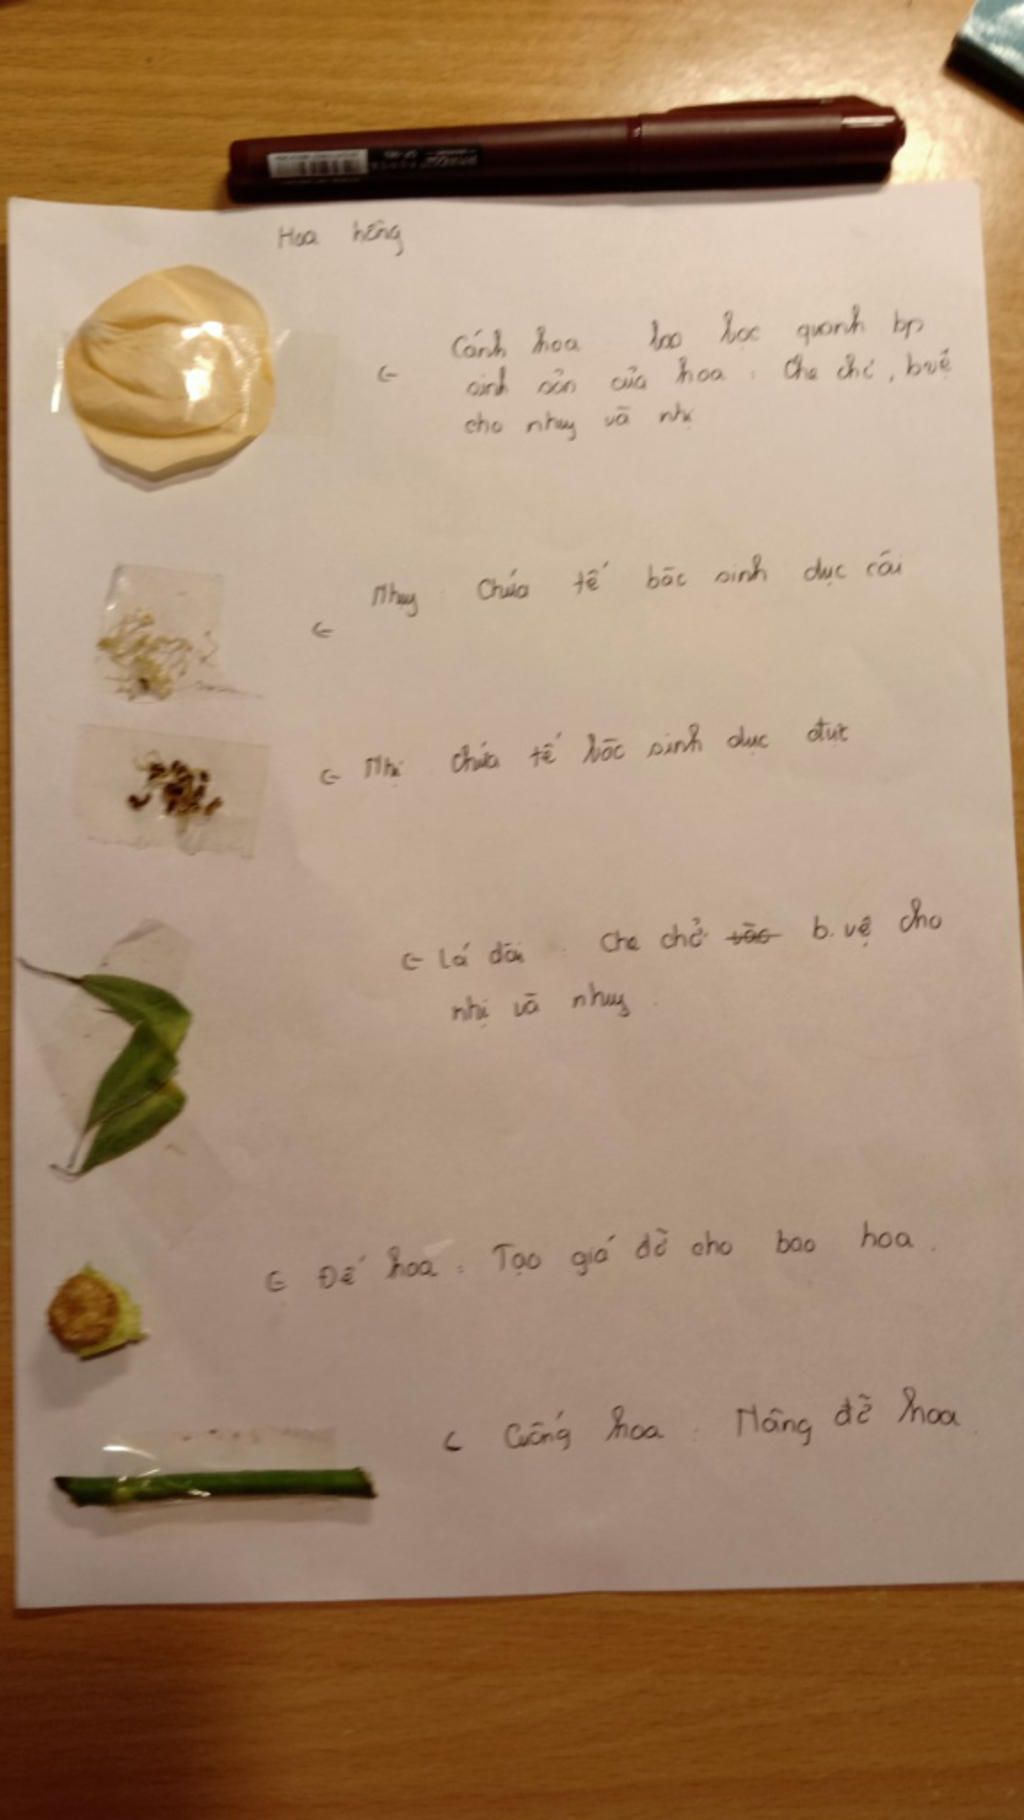 Hoa hồng
Cánh hoa bao bọc quanh bp
sinh sản của hoa : Che chở, b.vệ
cho nhuỵ và nhị
Nhuỵ : Chứa tế bào sinh dục cái
Nhị chứa tế bào sinh dục đực
Lá đài : Che chở b.vệ cho
nhị và nhuỵ.
Đế hoa : Tạo giá đỡ cho bao hoa.
Cuống hoa : Nâng đỡ hoa.